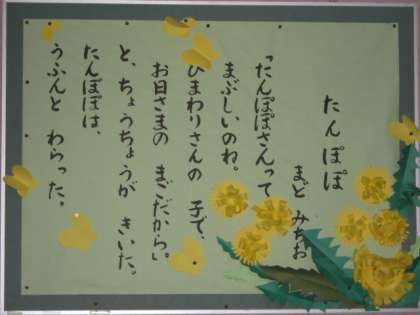 たんぽぽ
まど みちお
「たんぽぽさんって
まぶしいのね。
ひまわりさんの 子で、
お日さまの まごだから。」
と、ちょうちょうが きいた。
たんぽぽは、
うふんと わらった。